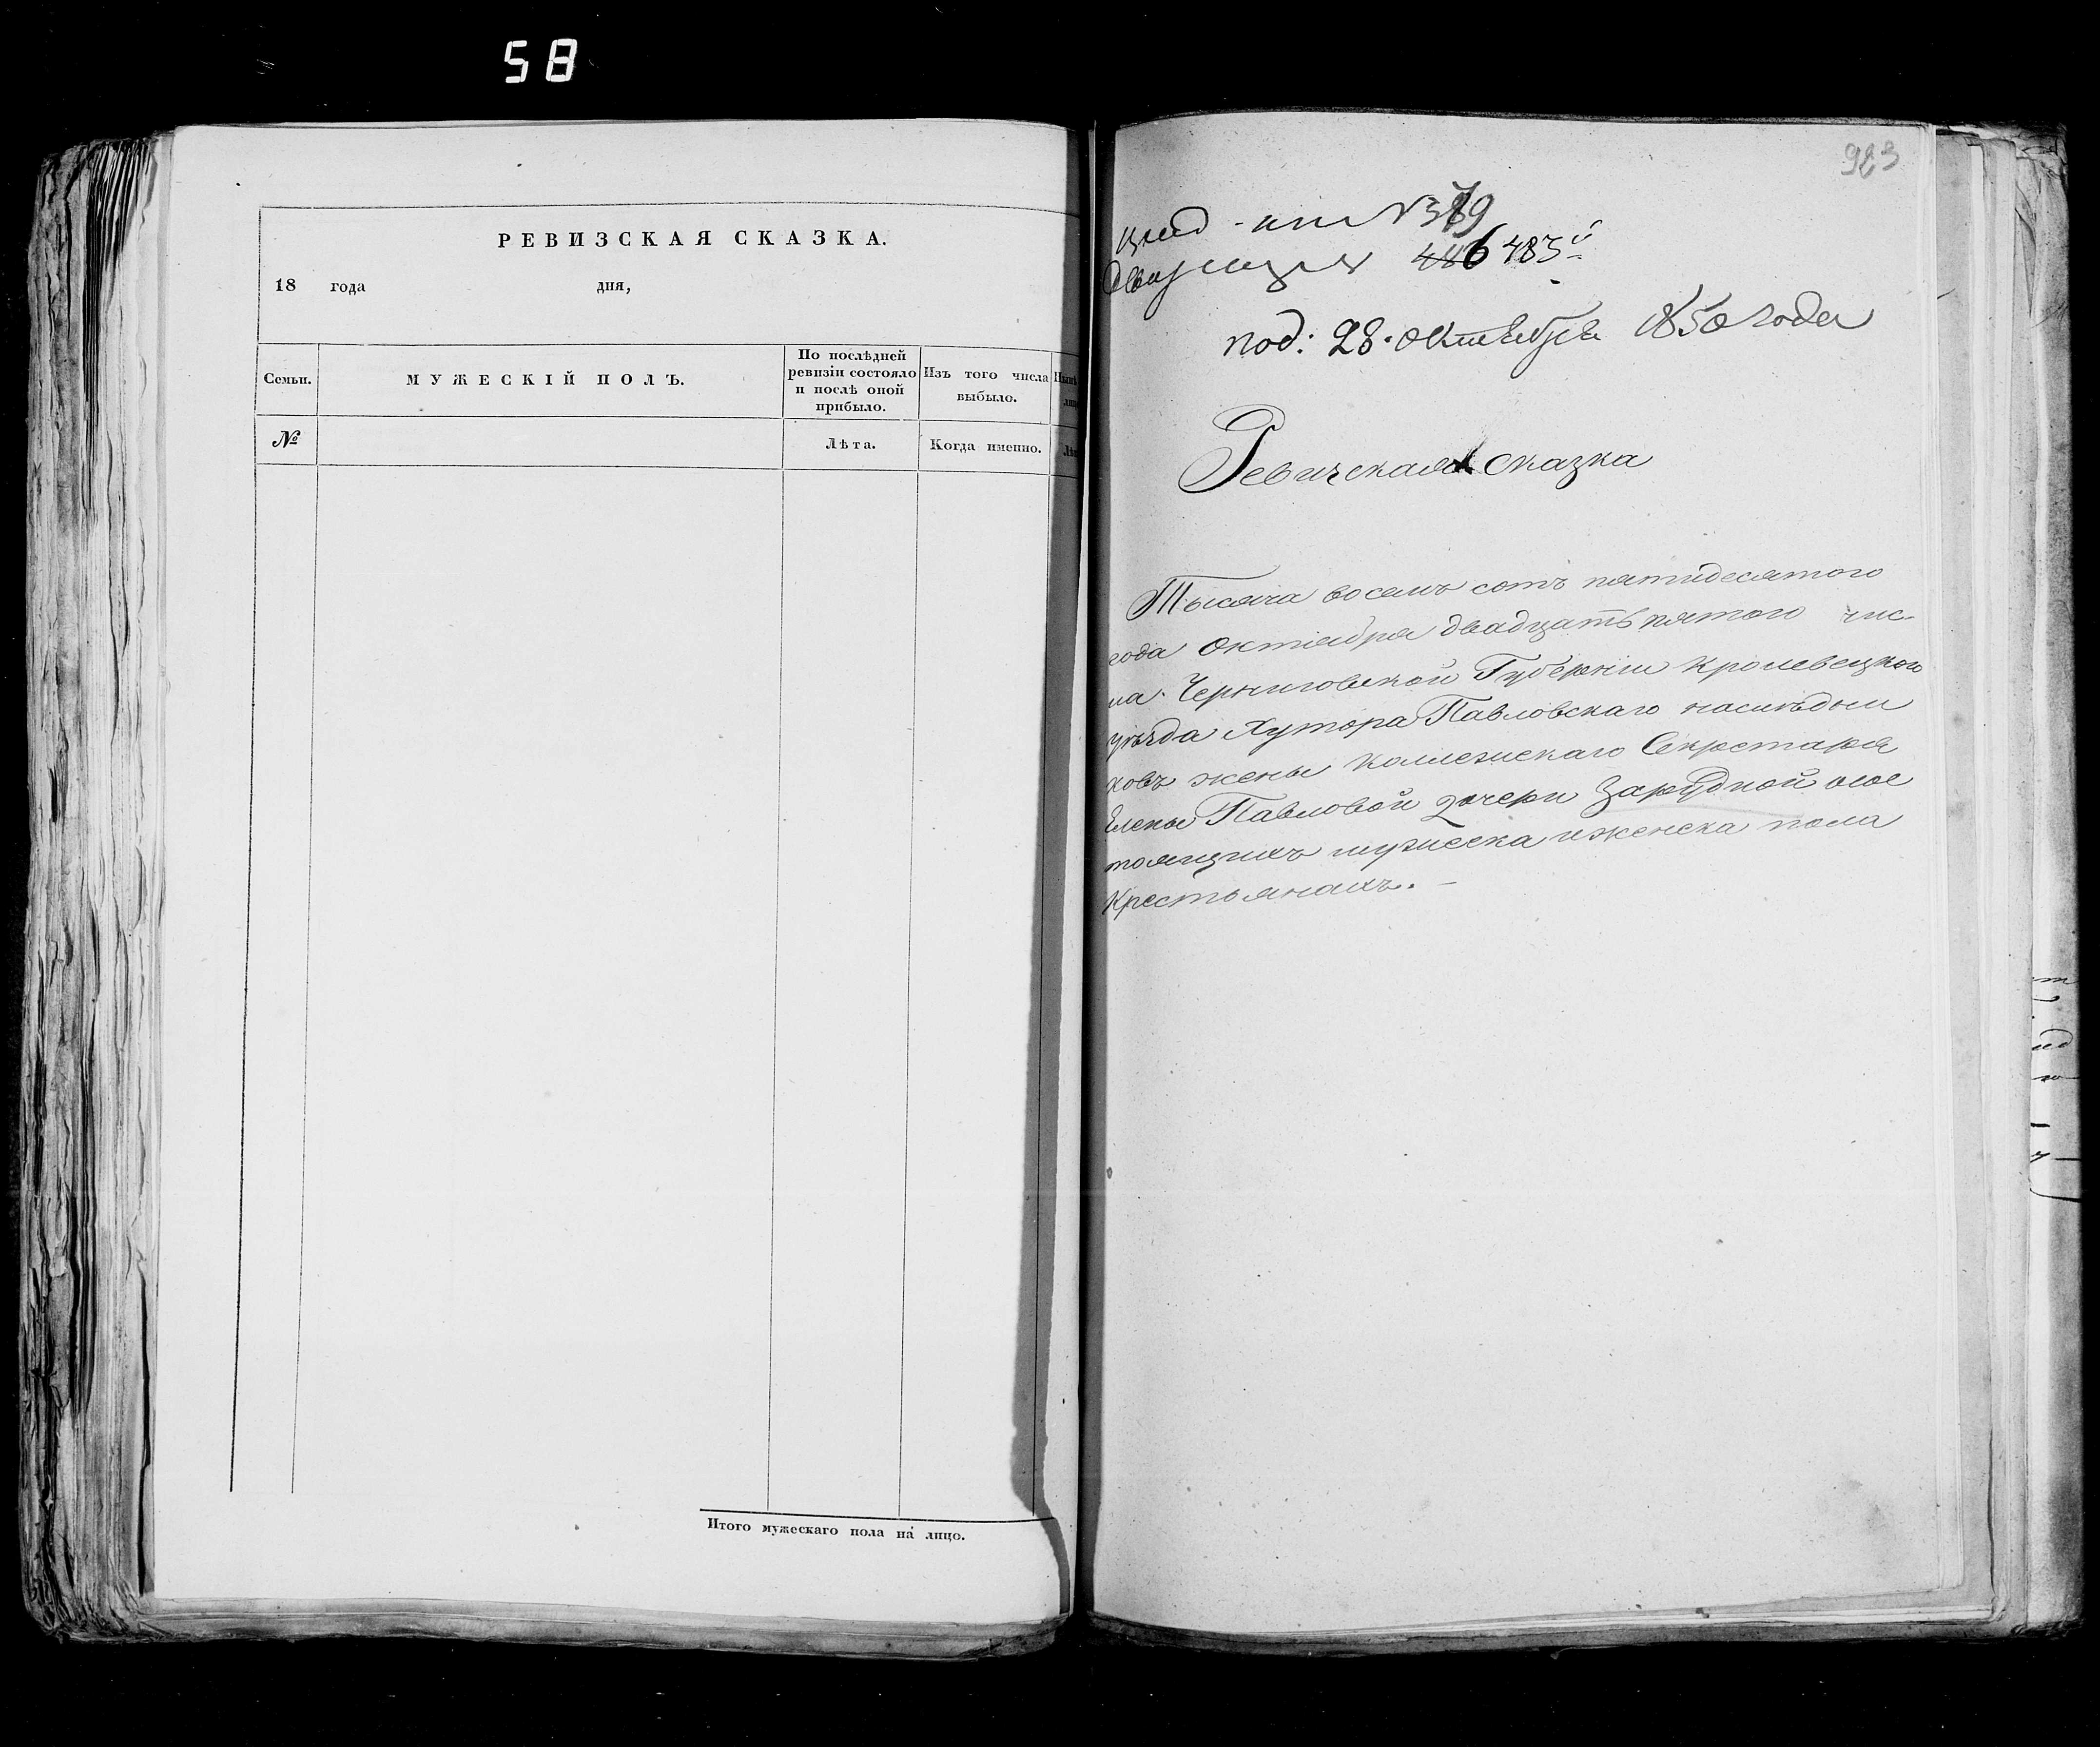 58
РЕВИЗСКАЯ СКАЗКА.
18 года дня,
Семьи.
МУЖЕСКІЙ ПОЛЪ.
По послѣдней
ревизіи состояло
и послѣ оной
прибыло.
Изъ того числа
выбыло.
№
Лѣта.
Когда именно.
Итого мужескаго пола на лицо.
923
483й
под: 28. Октября 1850 года
Ревизская Сказка
Тысяча восемь сотъ пятидесятого
года Октября двадцать пятого чис-
ла. Черниговской Губерніи Кролевецкого
уѣзда Хутора Павловскаго наслѣдни
ковъ жены Коллежскаго Секретаря
Елены Павловой дочери Зарудной о сос
тоящихъ мужеска и женска пола
Крестьянахъ. –